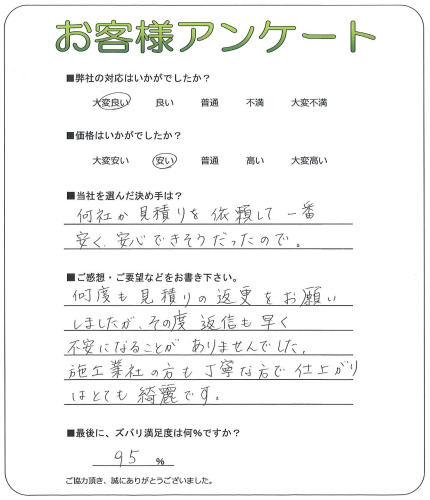 お客様アンケート
■弊社の対応はいかがでしたか?
大変良い 良い 普通 不満 大変不満
■価格はいかがでしたか?
大変安い 安い 普通 高い 大変高い
■当社を選んだ決め手は?
何社か見積りを依頼して一番
安く、安心できそうだったので。
■ご感想・ご要望などをお書き下さい。
何度も見積りの返更をお願い
しましたが、その度返信も早く
不安になることがありませんでした。
施工業社の方も丁寧な方で仕上がり
はとても綺麗です。
■最後に、ズバリ満足度は何%ですか?
95 %
ご協力頂き、誠にありがとうございました。